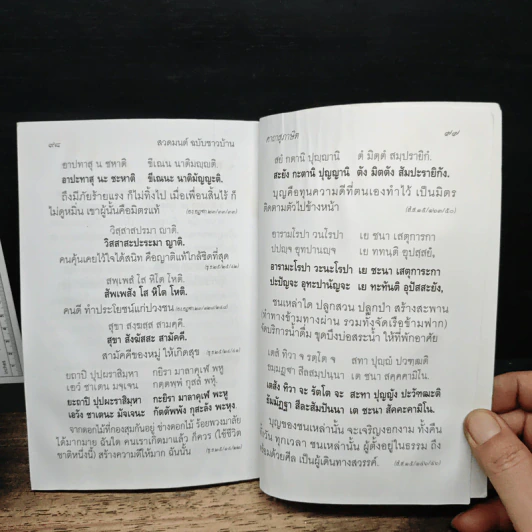 ๙๘ สวดมนต์ ฉบับชาวบ้าน
อาปทาสุ น ชหาติ ขีเณน นาติมญฺญติ.
อาปะทาสุ นะ ชะหาติ ขีเณนะ นาติมัญญะติ.
ถึงมีภัยร้ายแรง ก็ไม่ทิ้งไป เมื่อเพื่อนสิ้นไร้ ก็
ไม่ดูหมิ่น เขาผู้นั้นคือมิตรแท้
วิสฺสาสปรมา ญาติ.
วิสสาสะปะระมา ญาติ.
คนคุ้นเคยไว้ใจได้สนิท คือญาติแท้ใกล้ชิดที่สุด
สพฺเพสํ โส หิโต โหติ.
สัพเพสัง โส หิโต โหติ.
คนดี ทำประโยชน์แก่ปวงชน
สุขา สงฺฆสฺส สามคฺคี.
สุขา สังฆัสสะ สามัคคี.
สามัคคีของหมู่ ให้เกิดสุข
ยถาปิ ปุปฺผราสิมฺหา กยิรา มาลาคุเฬ พหู
เอวํ ชาเตน มจฺเจน กตฺตพฺพํ กุสลํ พหุํ.
ยะถาปิ ปุปผะราสิมหา กะยิรา มาลาคุเฬ พะหู
เอวัง ชาเตนะ มัจเจนะ กัตตัพพัง กุสะลัง พะหุง.
จากดอกไม้ที่กองสุมกันอยู่ ช่างดอกไม้ ร้อยพวงมาลัย
ได้มากมาย ฉันใด คนเราเกิดมาแล้ว ก็ควร (ใช้ชีวิต
ชาติหนึ่งนี้) สร้างความดีให้มาก ฉันนั้น
คาถาสุภาษิต ๙๙
สยํ กตานิ ปุญฺญานิ ตํ มิตฺตํ สมฺปรายิกํ.
สะยัง กะตานิ ปุญญานิ ตัง มิตตัง สัมปะรายิกัง.
บุญคือทุนความดีที่ตนเองทำไว้ เป็นมิตร
ติดตามตัวไปข้างหน้า
อารามโรปา วนโรปา เย ชนา เสตุการกา
ปปญฺจ อุทปานญฺจ เย ททนฺติ อุปสฺสยํ,
อารามะโรปา วะนะโรปา เย ชะนา เสตุการะกา
ปะปัญจะ อุทะปานัญจะ เย ทะทันติ อุปัสสะยัง,
ชนเหล่าใด ปลูกสวน ปลูกป่า สร้างสะพาน
(ทำทางข้ามทางผ่าน รวมทั้งจัดเรือข้ามฟาก)
จัดบริการน้ำดื่ม ขุดบึงบ่อสระน้ำ ให้ที่พักอาศัย
เตสํ ทิวา จ รตฺโต จ สทา ปุญฺญํ ปวฑฺฒติ
ธมฺมฏฺฐา สีลสมฺปนฺนา เต ชนา สคฺคคามิโน.
เตสัง ทิวา จะ รัตโต จะ สะทา ปุญญัง ปะวัฑฒะติ
ธัมมัฏฐา สีละสัมปันนา เต ชะนา สัคคะคามิโน.
บุญของชนเหล่านั้น จะเจริญงอกงาม ทั้งคืน
ทั้งวัน ทุกเวลา ชนเหล่านั้น ผู้ตั้งอยู่ในธรรม ถึง
พร้อมด้วยศีล เป็นผู้เดินทางสวรรค์.